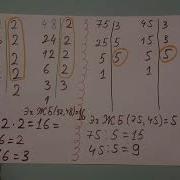 2 48 2 75 3 45 3
2 24 2 25 5 15 3
2 12 2 5 5 5 5
2 6 2 1 1
2 3
1
Эх ЖБ(32,48)=16 Эх ЖБ(75,45)=5
2·2=16= 75:5=15
6=2 45:5=9
6=3